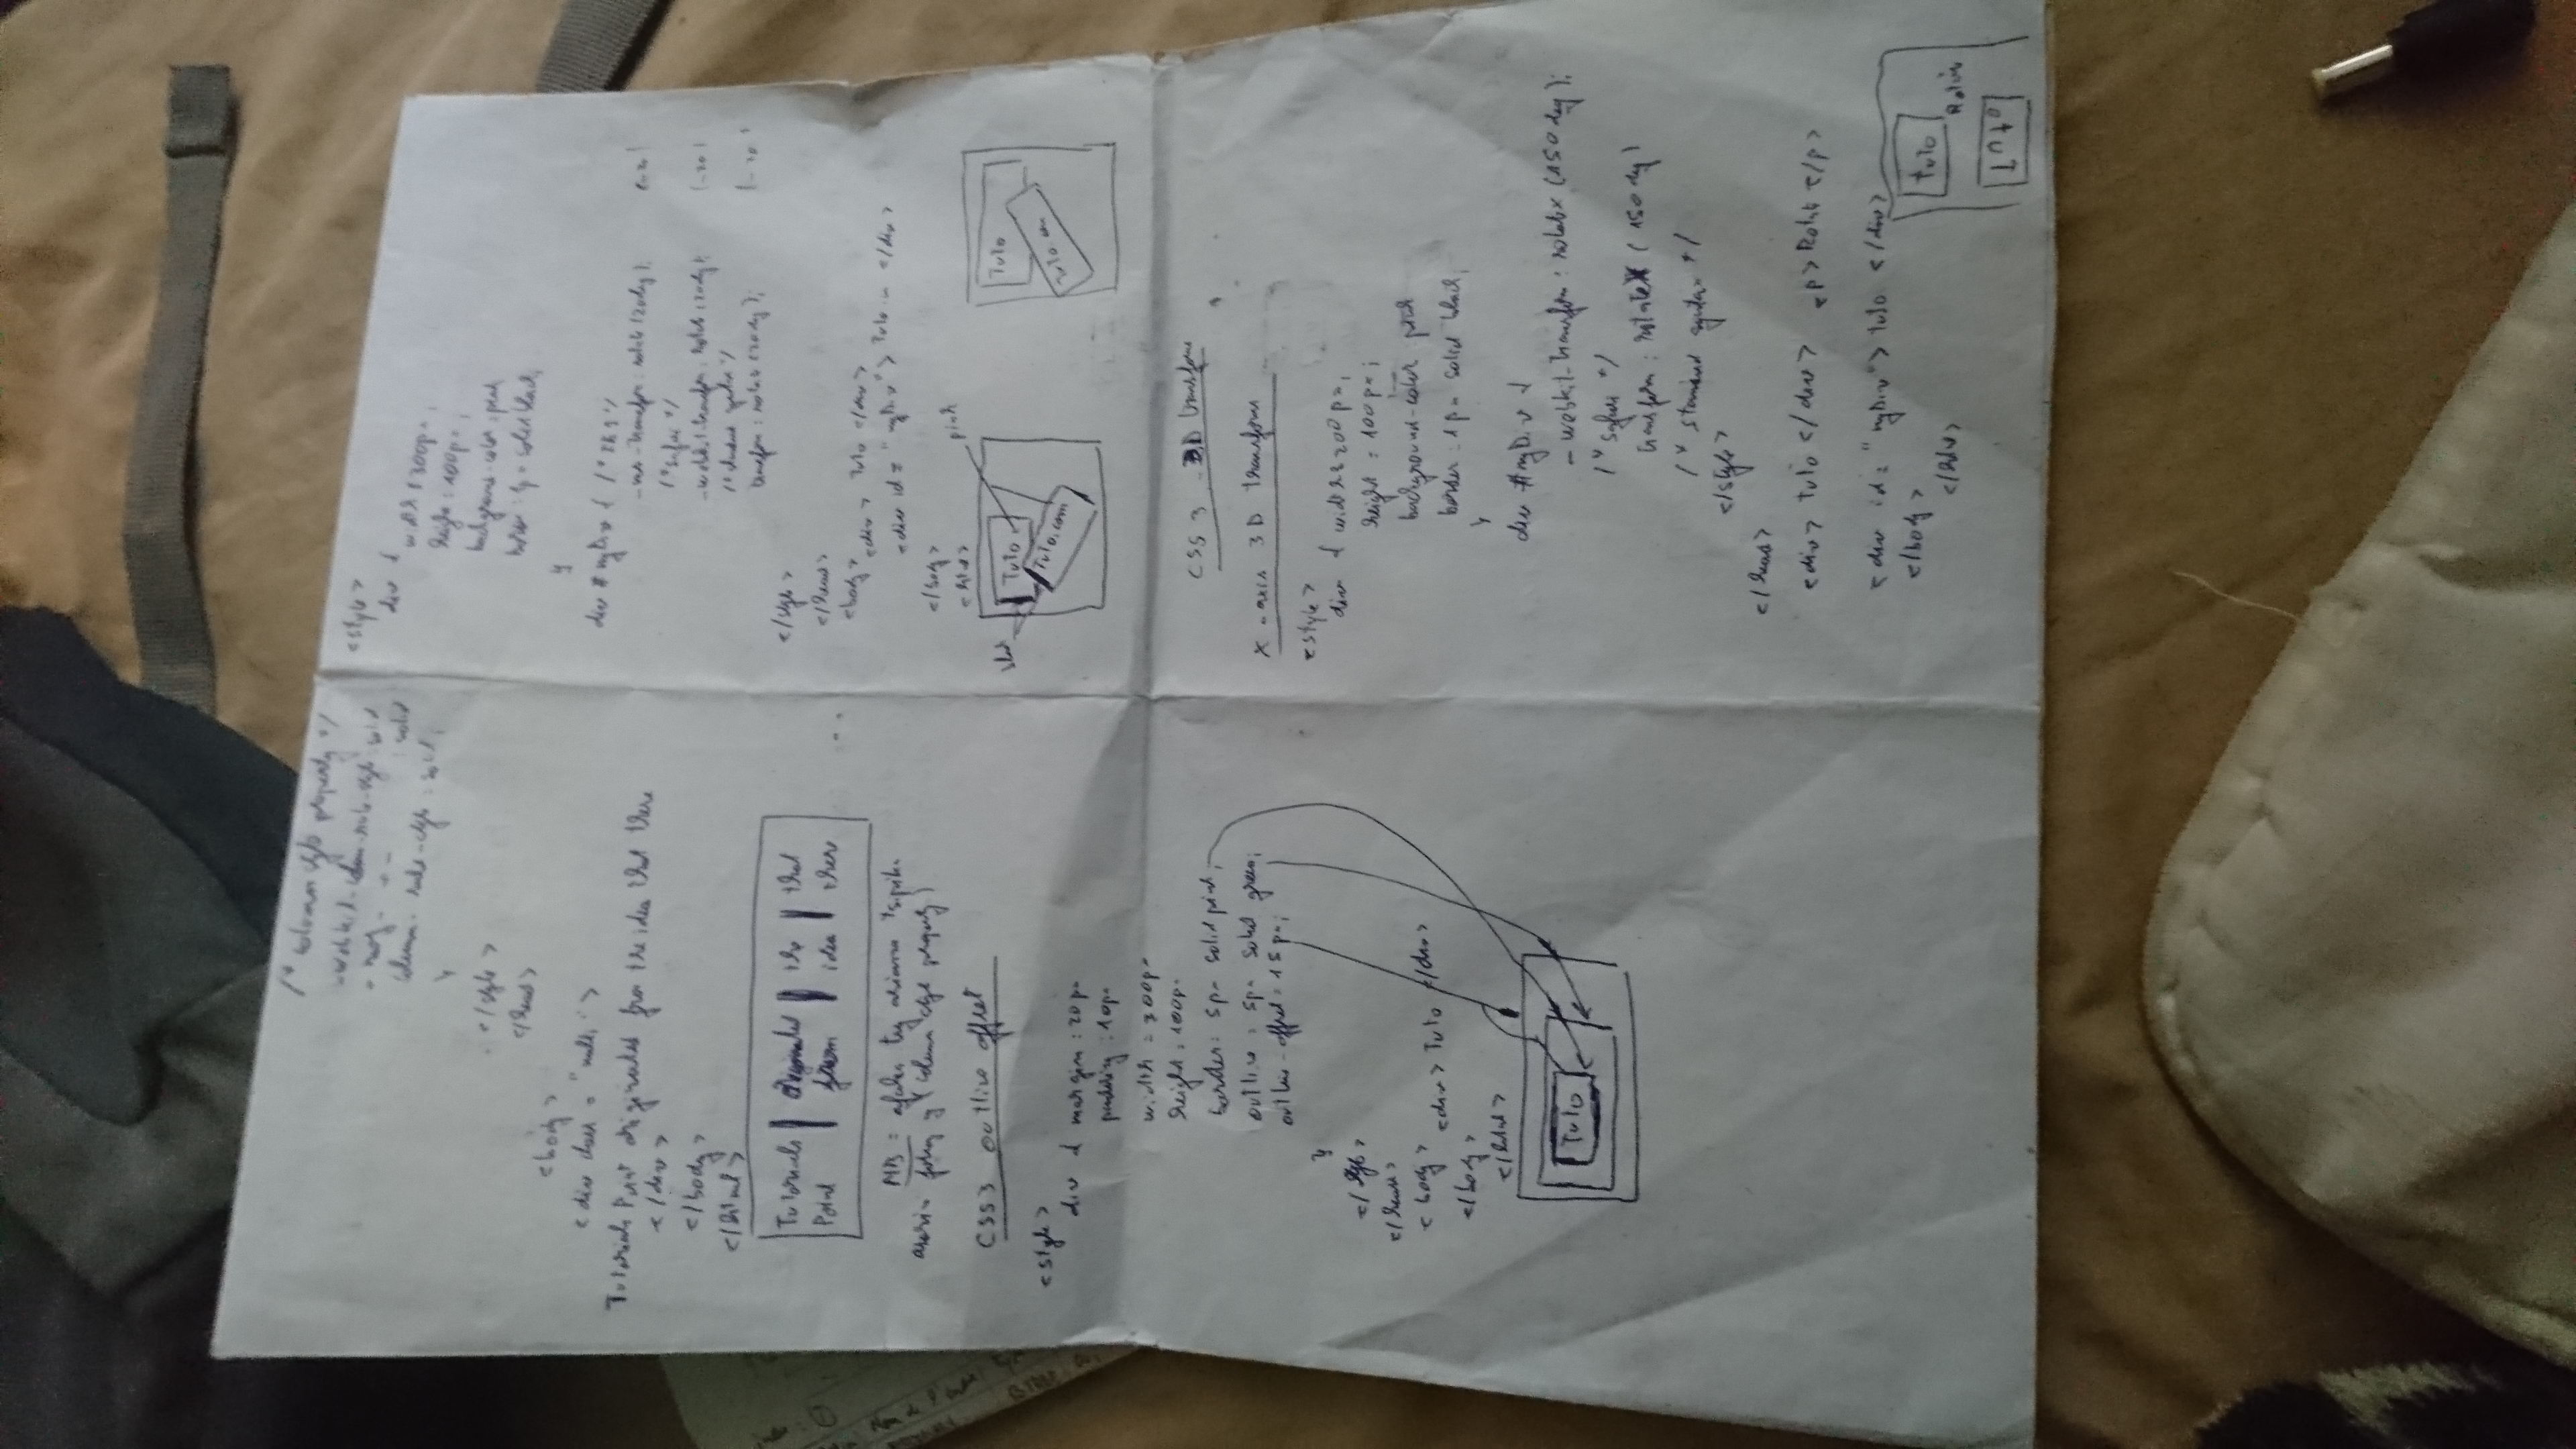 /* column style property */
-webkit-column-rule-style: solid
- moz- - - : solid
column-rule-style: solid;
}
</style>
</head>
<body>
<div class = "multi">
Tutorials Point originated from the idea that there
</div>
</body>
</html>
Tutorials | originated | the | that
Point | from | idea | there
NB =
(column style property)
CSS3 outline offset
<style>
div { margin : 20px
padding : 10px
width = 300px
height = 100px
border: 5px solid pink;
outline = 5px solid green;
outline-offset = 15px;
}
</style>
</head>
<body>
<div> Tuto </div>
</body>
</html>
Tuto
<style>
div {
width : 300px;
height : 100px;
background-color : pink
border : 1px solid black;
}
div #myDiv {
-ms-transform: rotate (20deg);
/* Safari */
-webkit-transform: rotate (20deg); (-20)
/* standard syntax */
transform : rotate (20deg); (-20)
</style>
</head>
<body>
<div> Tuto </div>
<div id = "myDiv"> Tuto </div>
</body>
<html>
pink
black
Tuto
Tuto.com
Tuto
Tuto.com
CSS 3 3D transform
X-axis 3D transform
<style>
div { width : 200px;
height = 100px;
background-color pink
border : 1px solid black;
}
div #myDiv {
-webkit-transform: rotatex (150deg);
/* Safari */
transform : rotateX (150deg)
/* standard syntax */
</style>
</head>
<div> tuto </div> <p> Rotate </p>
<div id = "myDiv"> tuto </div>
</body>
tuto
Tuto